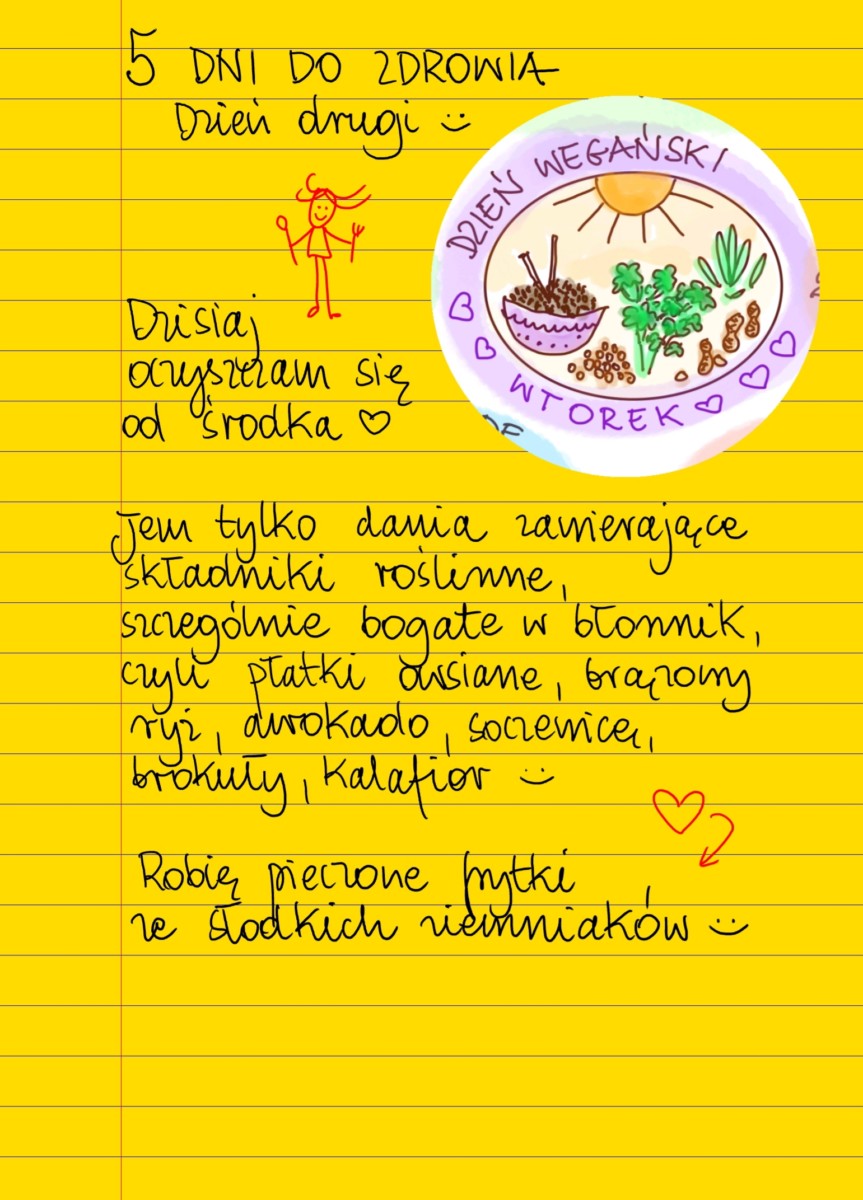 5 DNI DO ZDROWIA
Dzień drugi :)
DZIEŃ WEGAŃSKI
WTOREK
Dzisiaj
oczyszczam się
od środka ♡
Jem tylko dania zawierające
składniki roślinne,
szczególnie bogate w błonnik,
czyli płatki owsiane, brązowy
ryż, awokado, soczewicę,
brokuły, kalafior :)
Robię pieczone frytki
ze słodkich ziemniaków :)